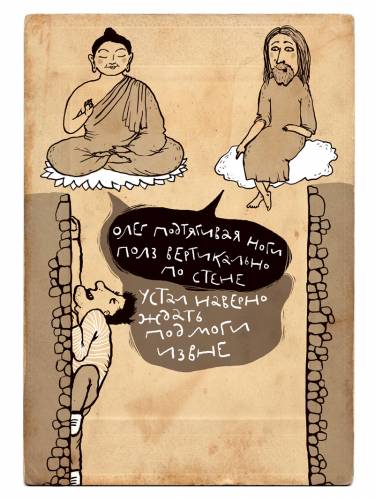 олег подтягивая ноги
полз вертикально
по стене
устал наверно
ждать
подмоги
извне